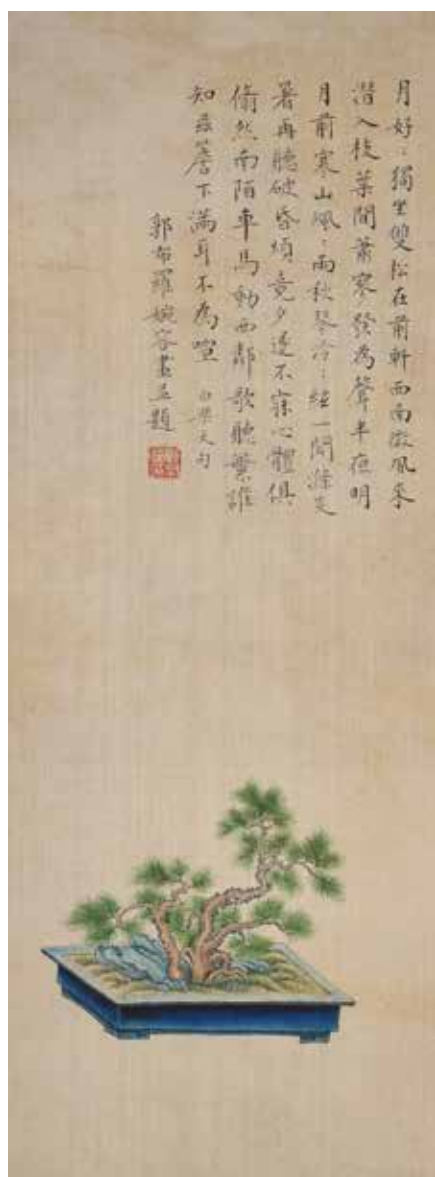 月好〻獨坐雙松在前軒西南微風來
潛入枝葉間蕭寒發為聲半夜明
月前寒山風〻雨秋琴泠〻絃一聞滌炎
暑再聽破昏煩竟夕遂不寐心體俱
翛然南陌車馬動西鄰歌聽繁誰
知茲簷下滿耳不為喧 白樂天句
郭布羅婉容畫并題